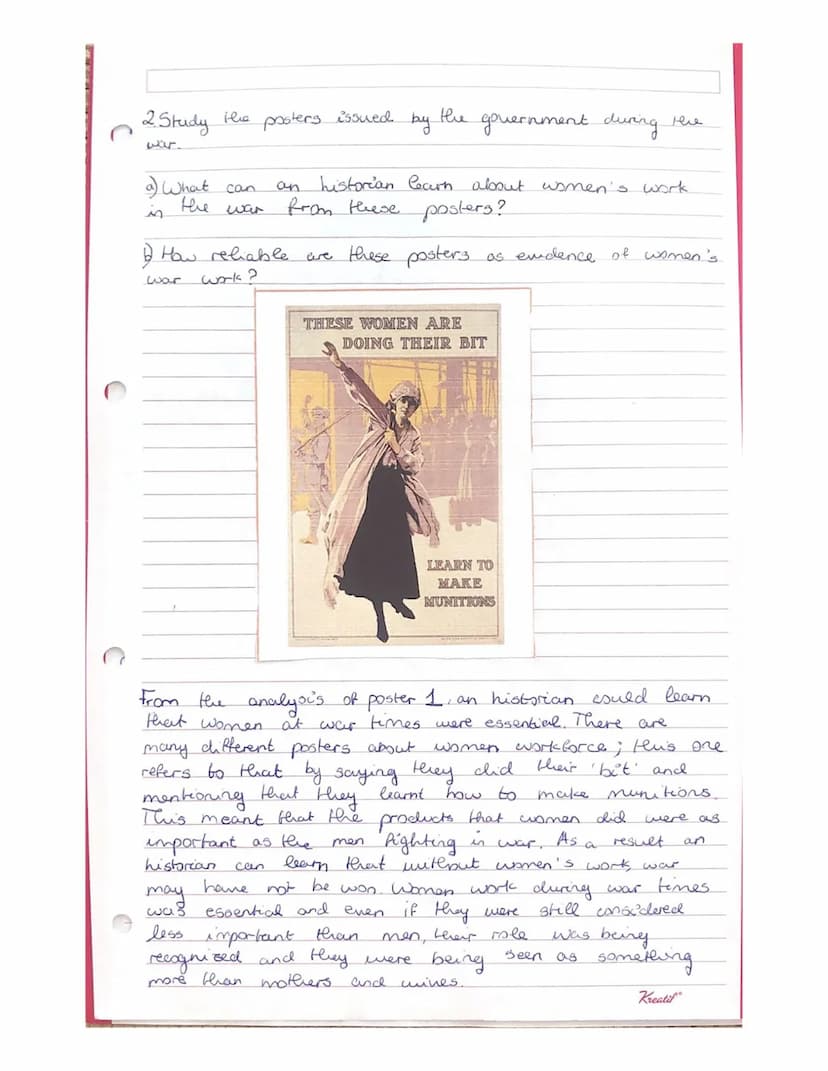 2 Study the posters issued by the government during the
war.
a) What can an historian learn about women's work
in the war from these posters?
b) How reliable are these posters as evidence of women's
war work?
THESE WOMEN ARE
DOING THEIR BIT
LEARN TO
MAKE
MUNITIONS
From the analysis of poster 1, an historian could learn
that women at war times were essential. There are
many different posters about women workforce; this one
refers to that by saying they did their 'bit' and
mentioning that they learnt how to make munitions.
This meant that the products that women did were as
important as the men fighting in war. As a result an
historian can learn that without women's work, war
may have not be won. Women work during war times
was essential and even if they were still considered
less important than men, their role was being
recognised and they were being seen as something
more than mothers and wives.
Kreatif